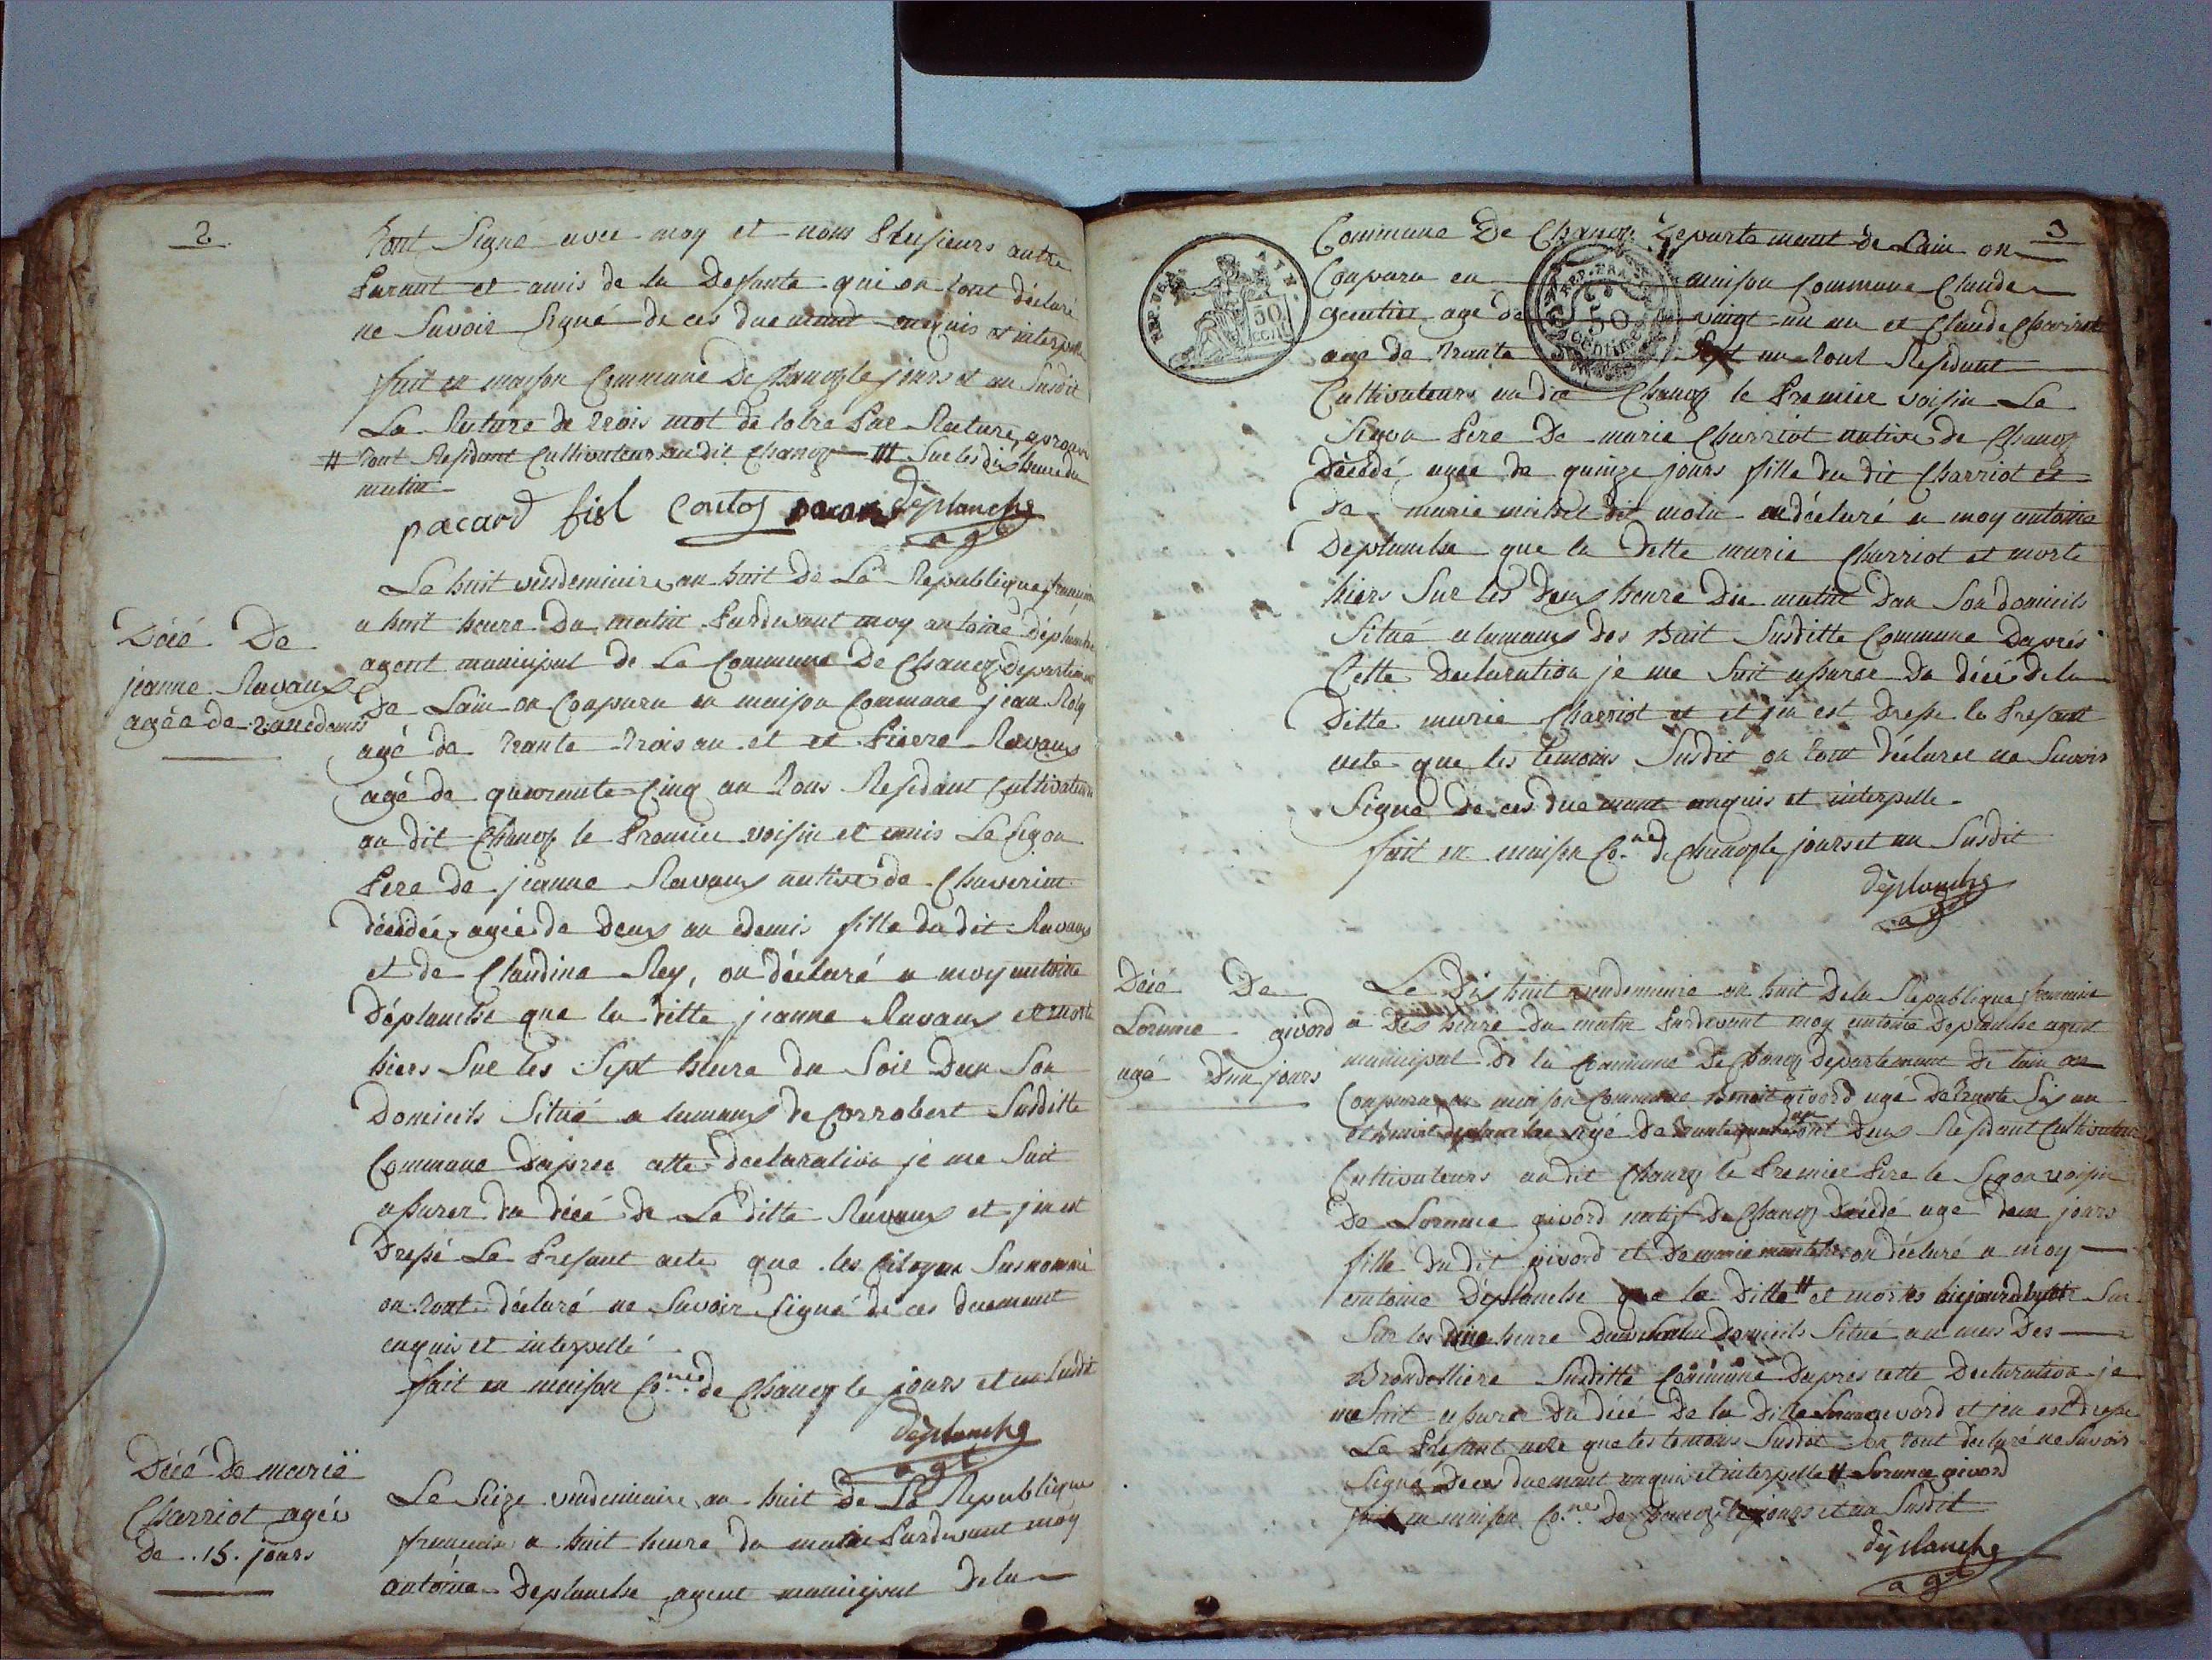 2
tout Signé avec moy et nom plusieurs autre
parant et amis de la Defante qui on tout déclaré
ne Savoir Signé de ces duemant enquis et interpellé
fait en maison Commune De Chanoz le jours et an Susdit
La Rature de trois mot de lotre par Rature aprouvé
# tout Residant Cultivateurs au dit Chanoz # Sur les dix heure du
matin
pacard fisl Contoz deplanche
agt
Décé De
jeanne Ravaux
agée de 2 an edemis
Le huit vendemiaire an huit De La Republique francaise
a huit heure Du matin Pardevant moy antoine déplanche
agent municipal de La Commune De Chanoz departement
De Lain on Conparu en maison Commune jean Roly
agé de trante trois an et et Pierre Ravaux
agé de quarante Cinq an tous Residant Cultivateurs
au dit Chanoz le Premier voisin et amis Le Segon
Pere de jeanne Ravaux native de Chaverint
décédée agée de Deux an edemis fille du dit Ravaux
et de Claudine Rey, on déclaré a moy antoine
Déplanche que la ditte jeanne Ravaux et morte
hiers Sur les Sept heure du Soir Dan Son
Domicils Situé a lamaux de Corrobert Susditte
Commune Dapree cette declaration je me Suit
assurer du décé De La ditte Ravaux et jen est
Dressé Le Presant acte que les Citoyen Susnommé
on tout déclaré ne Savoir Signé de ces duemant
enquis et interpellé
fait en maison Co.nes de Chanoz le jours et an Susdit
déplanche
agt
Décé De marië
Charriot agée
De .15. jours
Le Seize vendemiaire an huit De La Republique
francaise a huit heure du matin Pardevant moy
antoine Deplanche agent municipal Dela
3
REP. FRA.
50
CENTIMES
Commune De Chanoz Departement de Lain on
Conparu en maison Commune Claude
gentier agé de vingt un an et Claude Charriot
agé de trante Sept an tout Residant
Cultivateurs au dit Chanoz le Premier voisin Le
Segon Pere De marie Charriot native de Chanoz
Décédé agée de quinze jours fille du dit Charriot et
De marie michel dit motin on déclaré a moy antoine
Deplanche que la ditte marie Charriot et morte
hiers Sur les Deux heure Du matin Dan Son domicils
Situé a lamaux des Bait Susditte Commune Daprés
Cette Declaration je me Suit assurée Du décé de la
Ditte marie Charriot et et jen est Dressé le Presant
acte que les temoins Susdit on tout déclarer ne Savoir
Signé De ces duemant enquis et interpelle
fait en maison Co.nes de Chanoz le jours et an Susdit
déplanche
agt
Décé De
Loranne givord
agé Dun jours
Le Dix huit vendemiaire an huit Dela Republique francaise
a Dix heure Du matin Pardevant moy antoine Deplanche agent
municipal De la Commune De Chanoz Departement De lain on
Conparu en maison Commune Benoit givord agé De trante Six an
et Benoit deplanche agé De trante quatre tout Deux Residant Cultivateurs
Cultivateurs au dit Chanoz le Premier Pere le Segon voisin
De Loranne givord natif De Chanoz Décédé agé deun jours
fille Du dit givord et De marie on déclaré a moy
antoine Déplanche que la Ditte # et mortes Sur
Sur les heure Domicils Situé au mas Des
Brondelliere Susditte Commune Dapres cette Declaration je
me Suit assurer Du décé De la Ditte Loranne givord et jen est Dressé
Le Presant acte que les temoins Susdit on tout declaré ne Savoir
Signé De ces duemant enquis et interpelle # Loranne givord
fait en maison Co.nes De Chanoz le jours et an Susdit
déplanche
agt